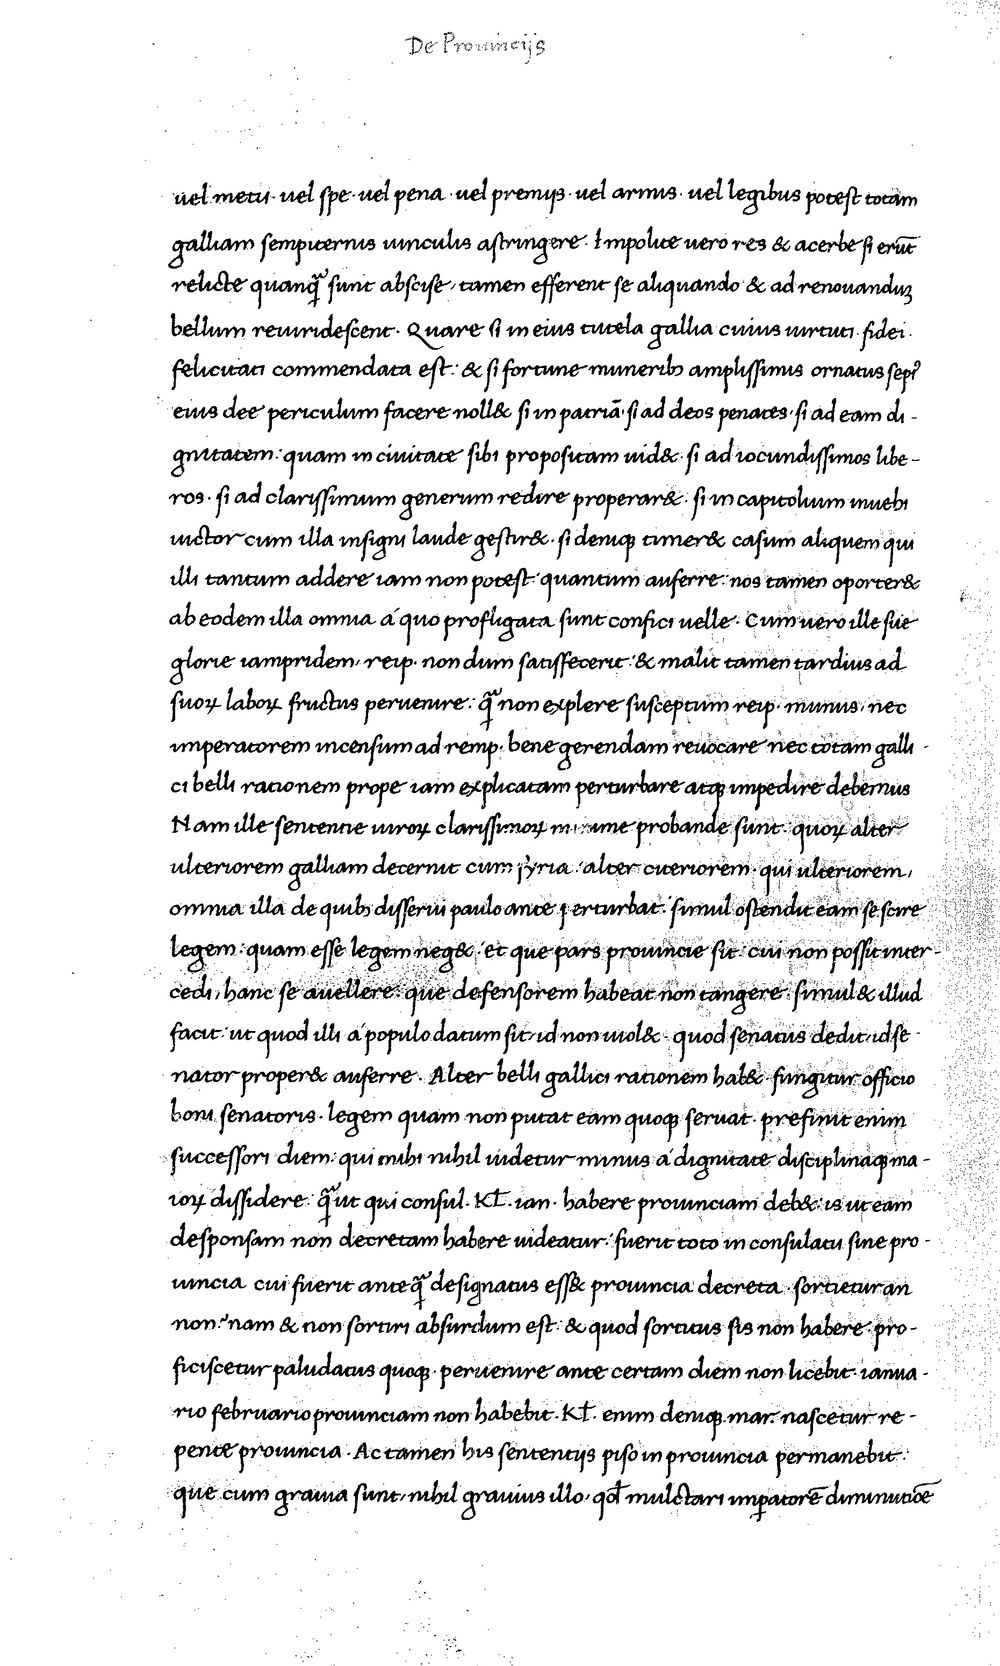 De Prouincijs
uel metu · uel spe · uel pena · uel premijs · uel armis · uel legibus potest totam
galliam sempiternis uinculis astringere · Impolite uero res & acerbe si erūt
relicte quanq̃ sunt abscise, tamen efferent se aliquando & ad renouanduꝫ
bellum reuiridescent · Quare si in eius tutela gallia cuius uirtuti · fidei ·
felicitati commendata est : & si fortune muneribꝫ amplissimis ornatus sepi᷑
eius dee periculum facere noll& si in patriā · si ad deos penates · si ad eam di-
gnitatem : quam in ciuitate sibi propositam uid& · si ad iocundissimos libe-
ros · si ad clarissimum generum redire properar& · si in capitolium inuehi
uictor cum illa insigni laude gestir& · si deniqꝫ timer& casum aliquem qui
illi tantum addere iam non potest · quantum auferre : nos tamen oporter&
ab eodem illa omnia a' quo profligata sunt confici uelle · Cum uero ille sue
glorie iampridem, reip · non dum satisfecerit : & malit tamen tardius ad
suoꝝ laboꝝ fructus peruenire : q̃ non explere susceptum reip · munus, nec
imperatorem incensum ad remp · bene gerendam reuocare nec totam galli-
ci belli rationem prope iam explicatam perturbare atqꝫ impedire debemus
Nam ille sententie uiroꝝ clarissimoꝝ minime probande sunt · quoꝝ alter
ulteriorem galliam decernit cum syria : alter citeriorem · qui ulteriorem,
omnia illa de quibꝫ disserui paulo ante perturbat : simul ostendit eam se scire
legem : quam esse legem neg& : et que pars prouincie sit : cui non possit inter-
cedi, hanc se auellere : que defensorem habeat non tangere : simul & illud
facit : ut quod illi a' populo datum sit, id non uiol& · quod senatus dedit, id se-
nator proper& auferre · Alter belli gallici rationem hab& · fungitur officio
boni senatoris · legem quam non putat eam quoqꝫ seruat · prefinit enim
successori diem : qui mihi nihil uidetur minus a' dignitate disciplinaqꝫ ma-
ioꝝ dissidere : q̃ ut qui consul · Kł · ian · habere prouinciam deb& : is ut eam
desponsam non decretam habere uideatur : fuerit toto in consulatu sine pro-
uincia cui fuerit anteq̃ designatus ess& prouincia decreta · sortietur an
non : nam & non sortiri absurdum est : & quod sortitus sis non habere : pro-
ficiscetur paludatus quoqꝫ · peruenire ante certam diem non licebit · ianua-
rio februario prouinciam non habebit · Kł · enim deniqꝫ mar · nascetur re-
pente prouincia · Ac tamen his sententijs piso in prouincia permanebit :
que cum grauia sunt, nihil grauius illo, qđ mulctari imꝑatorē diminutiōe